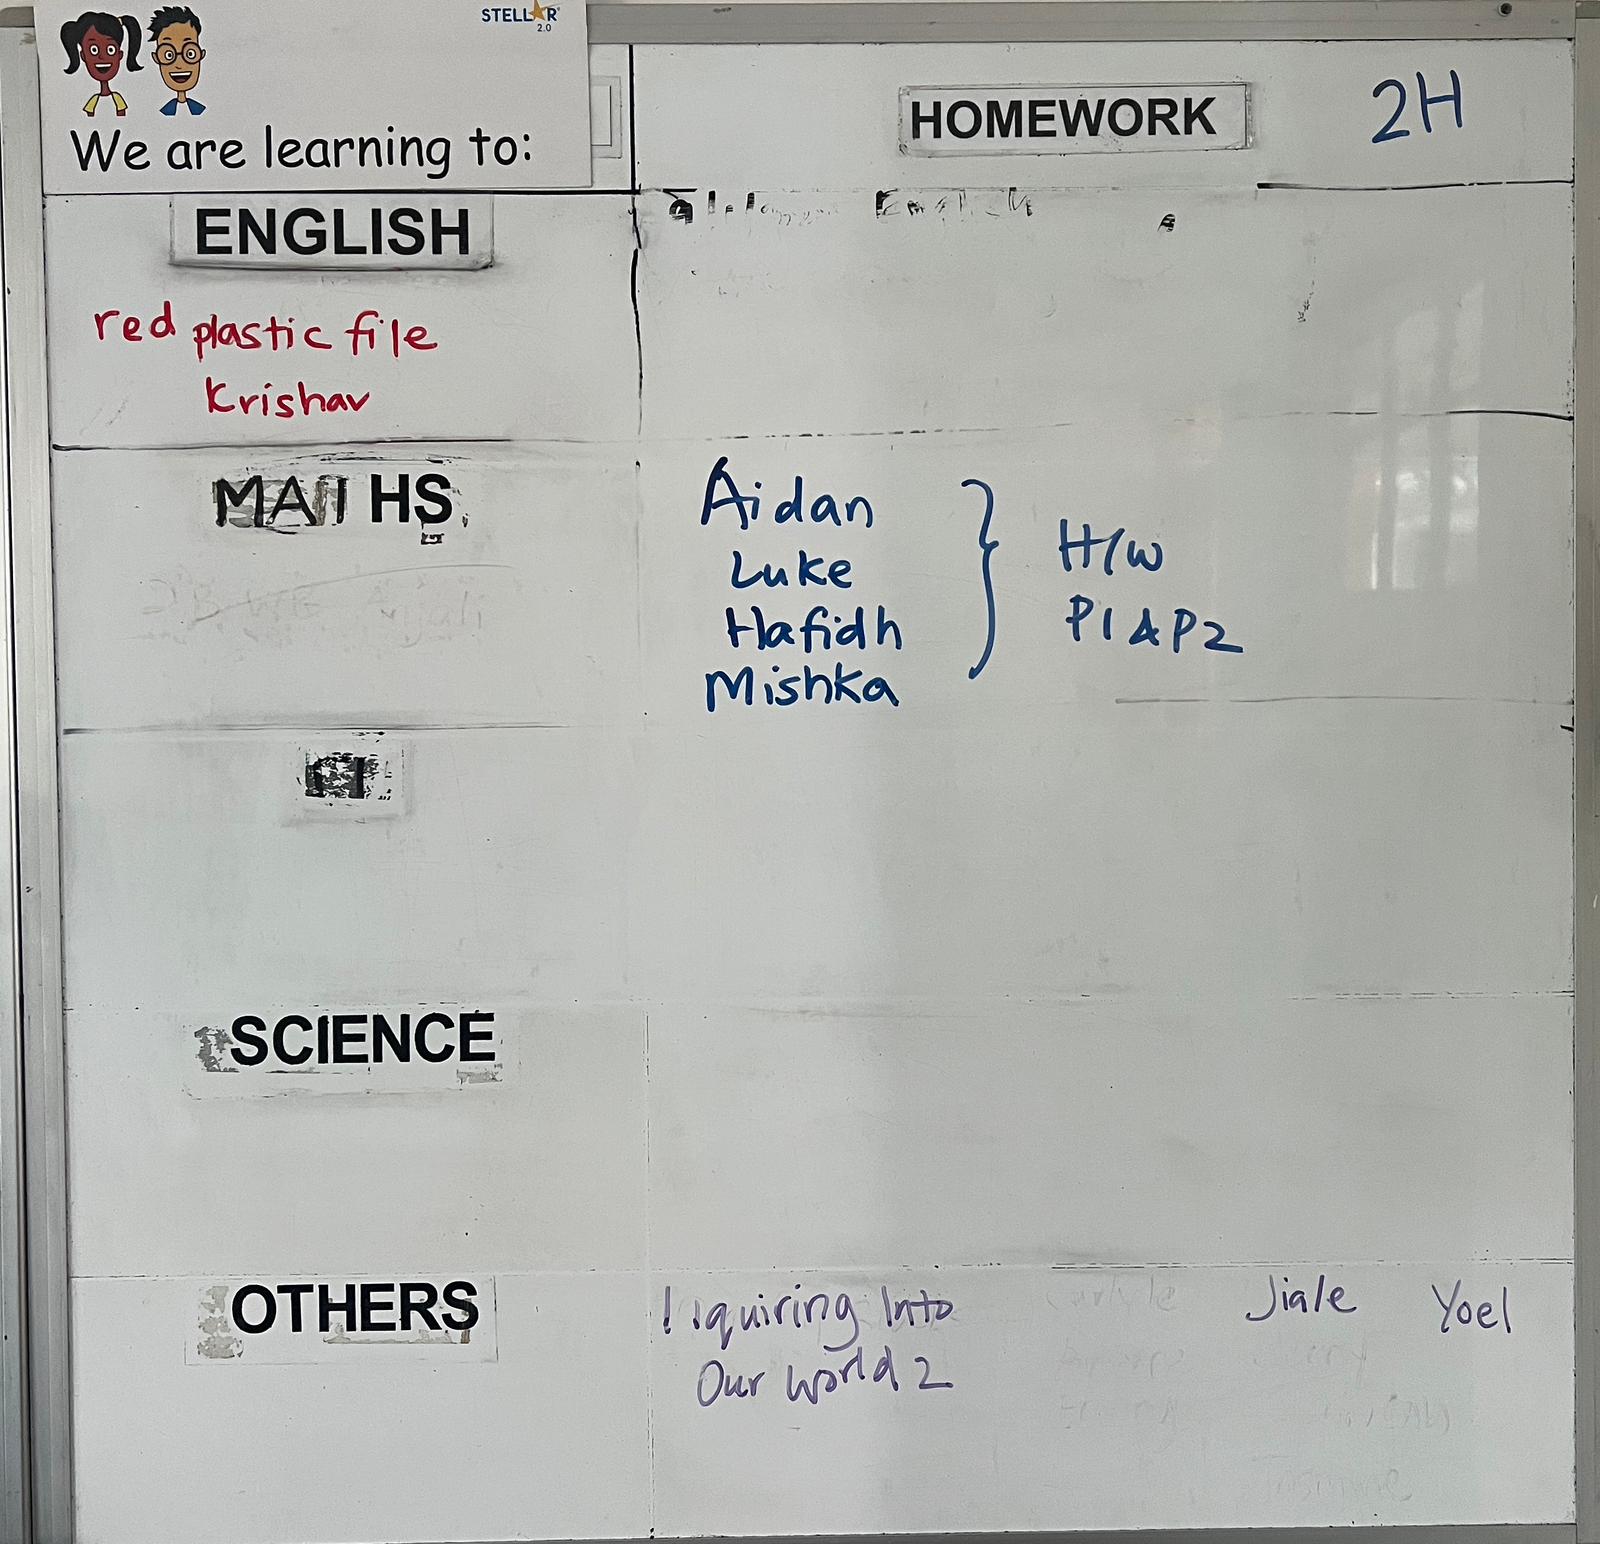 STELLAR 2.0
We are learning to:
HOMEWORK 2H
ENGLISH
English
red plastic file
Krishav
MATHS
Aidan
Luke
Hafidh
Mishka
H/W
P1 & P2
SCIENCE
OTHERS
Inquiring Into
Our World 2
Jiale Yoel